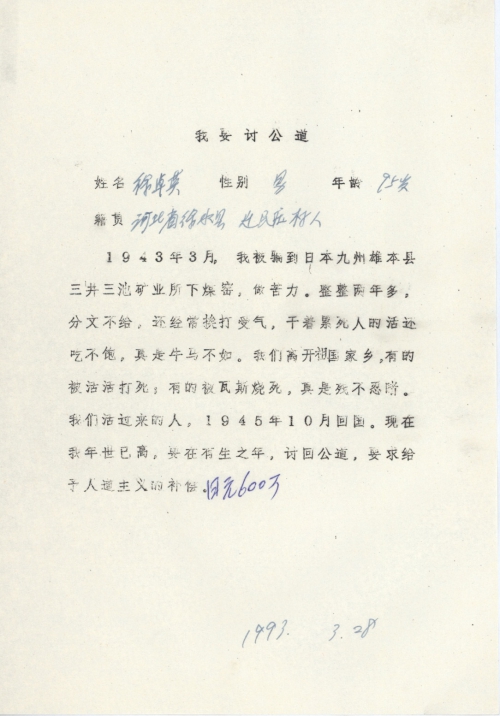 我要讨公道
姓名 徐卓英 性别 男 年龄 95岁
籍贯 河北省徐水县 迁民庄村人
1943年3月，我被骗到日本九州雄本县
三井三池矿业所下煤窑，做苦力。整整两年多，
分文不给，还经常挨打受气，干着累死人的活还
吃不饱，真是牛马不如。我们离开祖国家乡，有的
被活活打死；有的被瓦斯烧死，真是残不忍睹。
我们活过来的人，1945年10月回国。现在
我年世已高，要在有生之年，讨回公道，要求给
予人道主义的补偿.日元600万
1993. 3.28